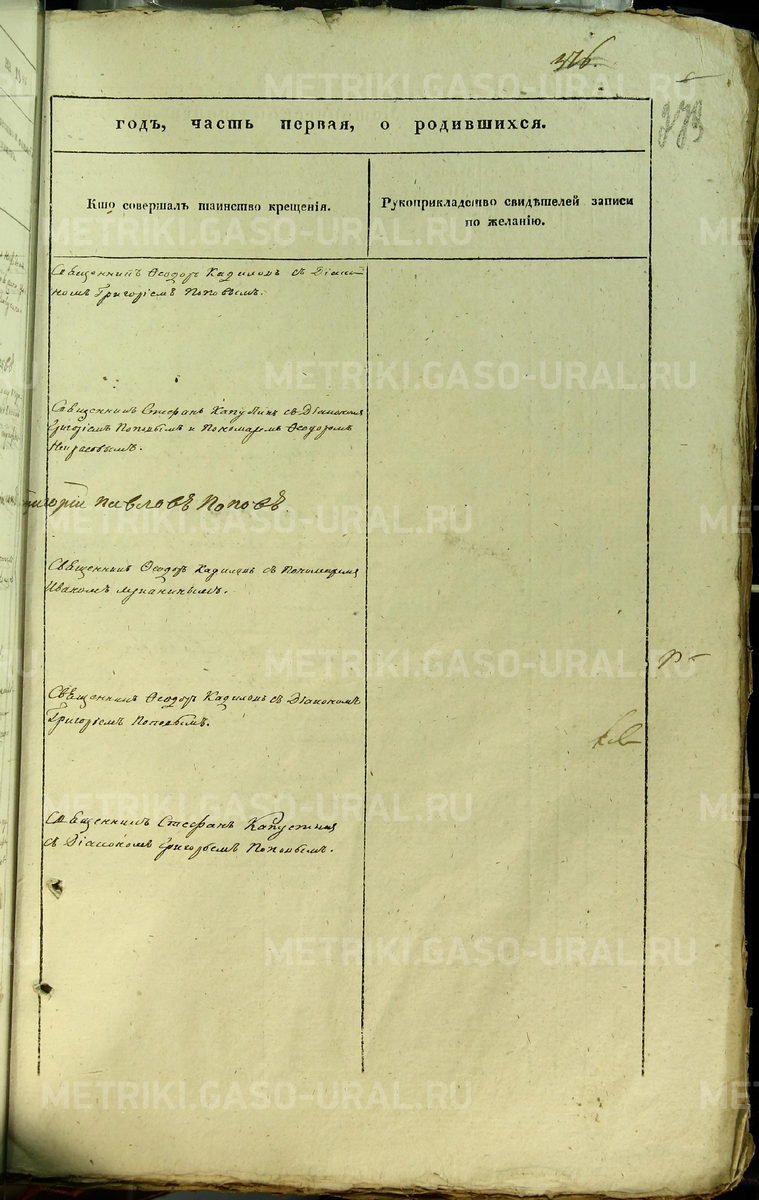 376.
373
годъ, часть первая, о родившихся.
Кто совершалъ таинство крещенія.
Рукоприкладство свидѣтелей записи по желанію.
Священникъ Ѳеодоръ Кадиловъ съ Діако-
номъ Григоріемъ Поповымъ.
Священникъ Стефанъ съ Діакономъ
Григоріемъ Поповымъ и Пономаремъ Ѳеодоромъ
Григорій Павловъ Поповъ.
Священникъ Ѳеодоръ Кадиловъ съ Пономаремъ
Иваномъ
Священникъ Ѳеодоръ Кадиловъ съ Діакономъ
Григорьемъ Поповымъ.
Священникъ Стефанъ Капустинъ
съ Діакономъ Григорьемъ Поповымъ.
METRIKI.GASO-URAL.RU